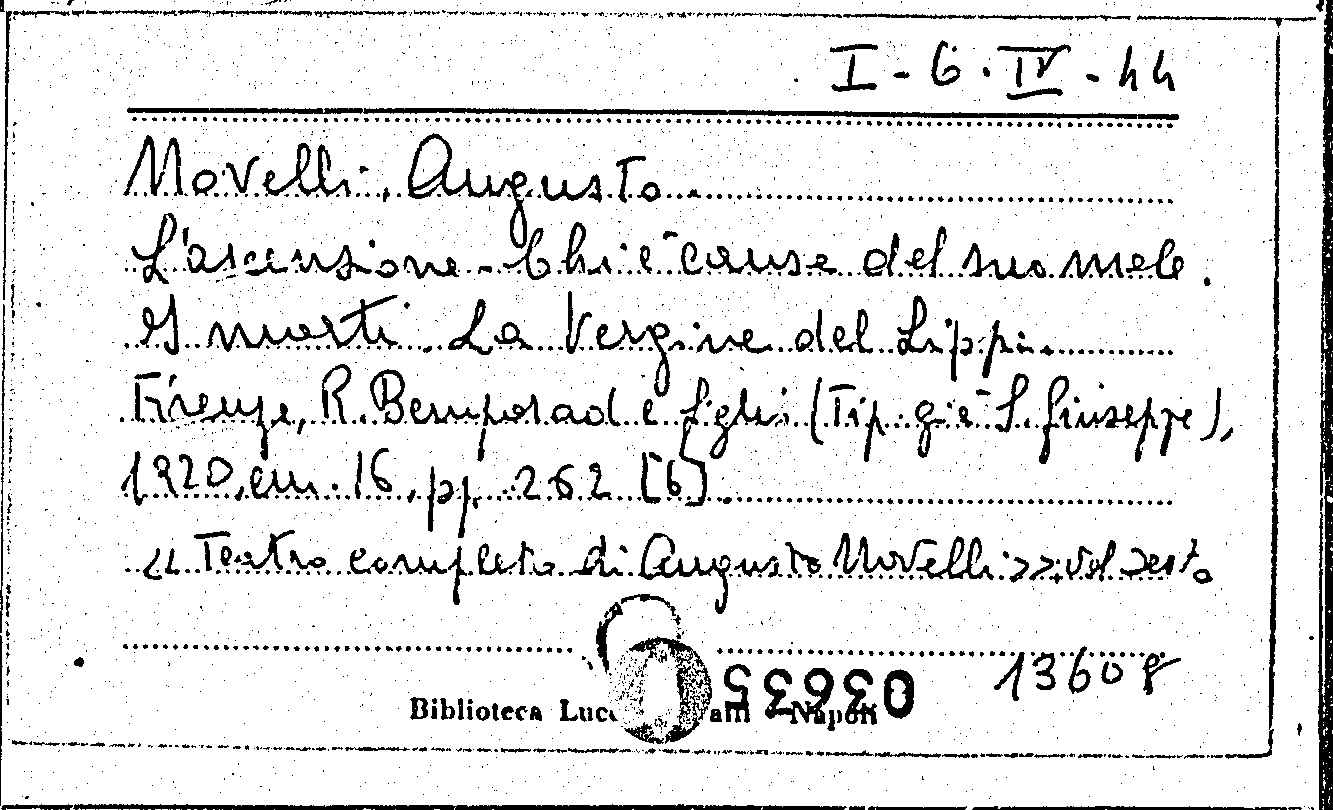 I-6.IV-44
Novelli, Augusto.
L'ascensione - Chi è causa del suo male.
I morti. La Vergine del Lippi.
Firenze, R. Bemporad e figli (Tip. già S. Giuseppe),
1920, cm. 16, pp. 262 [6].
«Teatro completo di Augusto Novelli», vol. sesto
13608
03635
Biblioteca Napoli